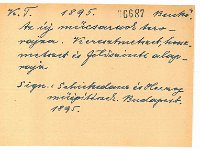 K.T. 1895. 6687 Benkő
Az új műcsarnok terv-
rajza. Keresztmetszet, hossz-
metszet és földszinti alap-
rajz.
Sign.: Schickedanz és Herzog
műépítészek. Budapest,
1895.